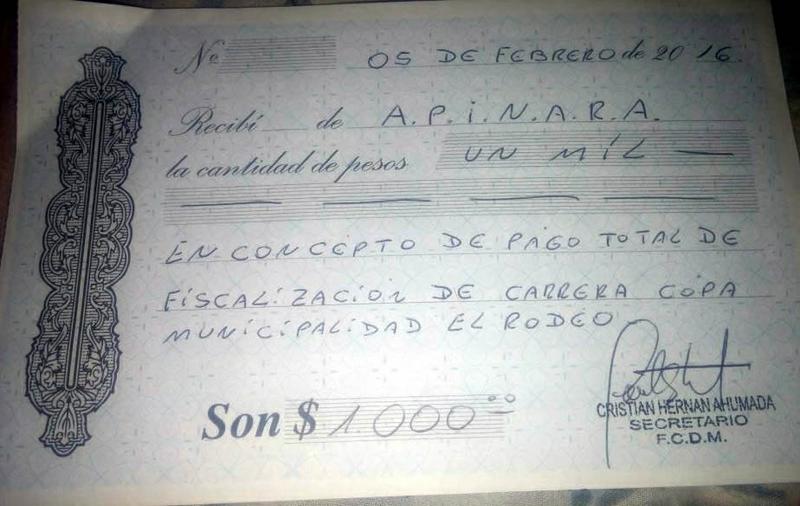 Nº 05 DE FEBRERO de 2016.
Recibí de A.P.I.N.A.R.A.
la cantidad de pesos UN MIL —
— — — —
EN CONCEPTO DE PAGO TOTAL DE
FISCALIZACION DE CARRERA COPA
MUNICIPALIDAD EL RODEO
Son $ 1.000 00
CRISTIAN HERNAN AHUMADA
SECRETARIO
F.C.D.M.